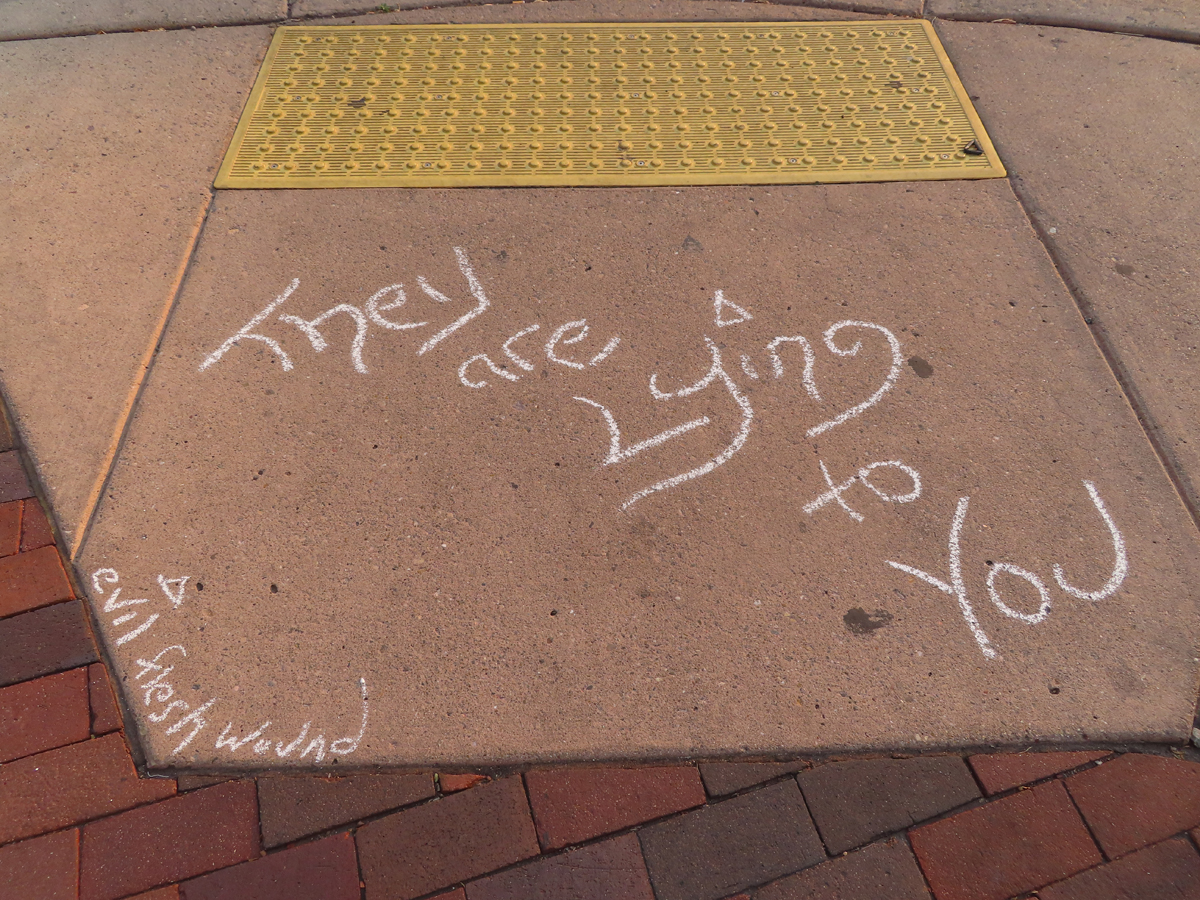 They
are
Lying
to
You
evil fresh wound